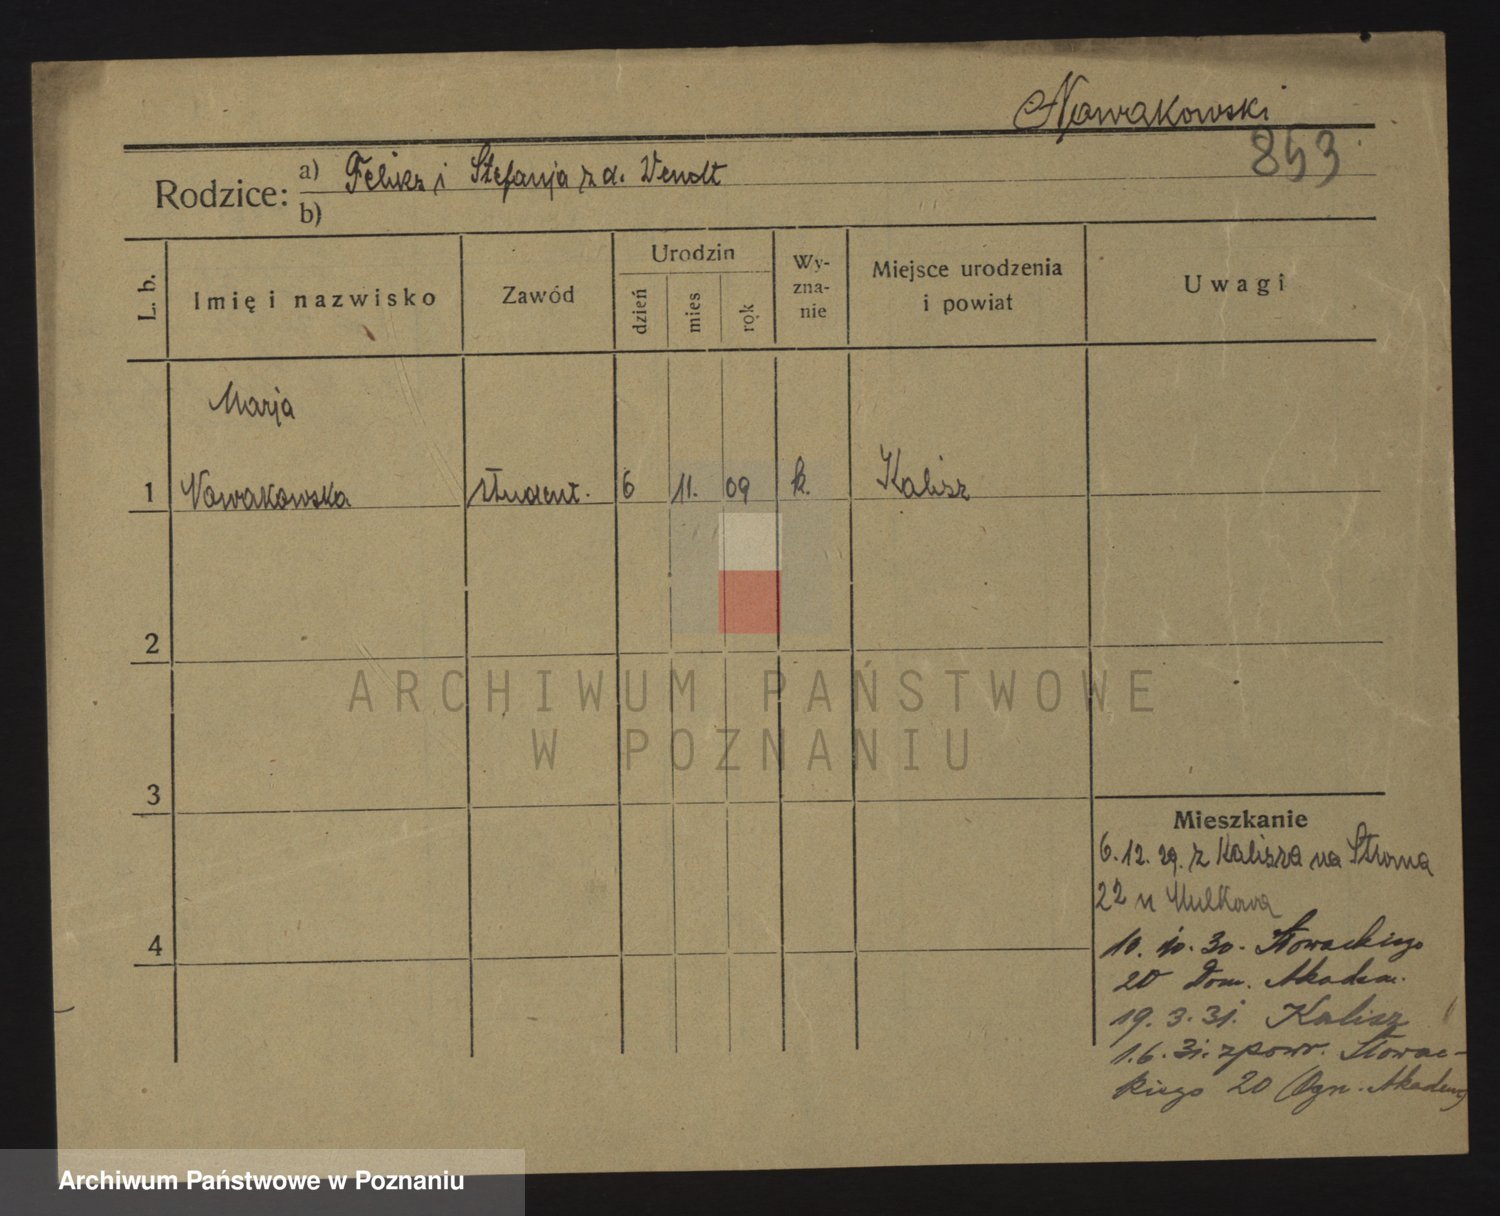 Nowakowski
853
Rodzice: a) Feliks i Stefanja z d. Wendt
b)
L. b. Imię i nazwisko Zawód Urodzin dzień mies rok Wy-zna-nie Miejsce urodzenia i powiat Uwagi
Marja
1 Nowakowska student. 6 11. 09 k. Kalisz
2
ARCHIWUM PAŃSTWOWE
W POZNANIU
3
Mieszkanie
6.12.29. z Kalisza na Stroma
22 u
4
10.10.30. Słowackiego
20 Dom. Akadem.
19.3.31. Kalisz
1.6.31. z powr. Słowac-
kiego 20 Akadem
Archiwum Państwowe w Poznaniu